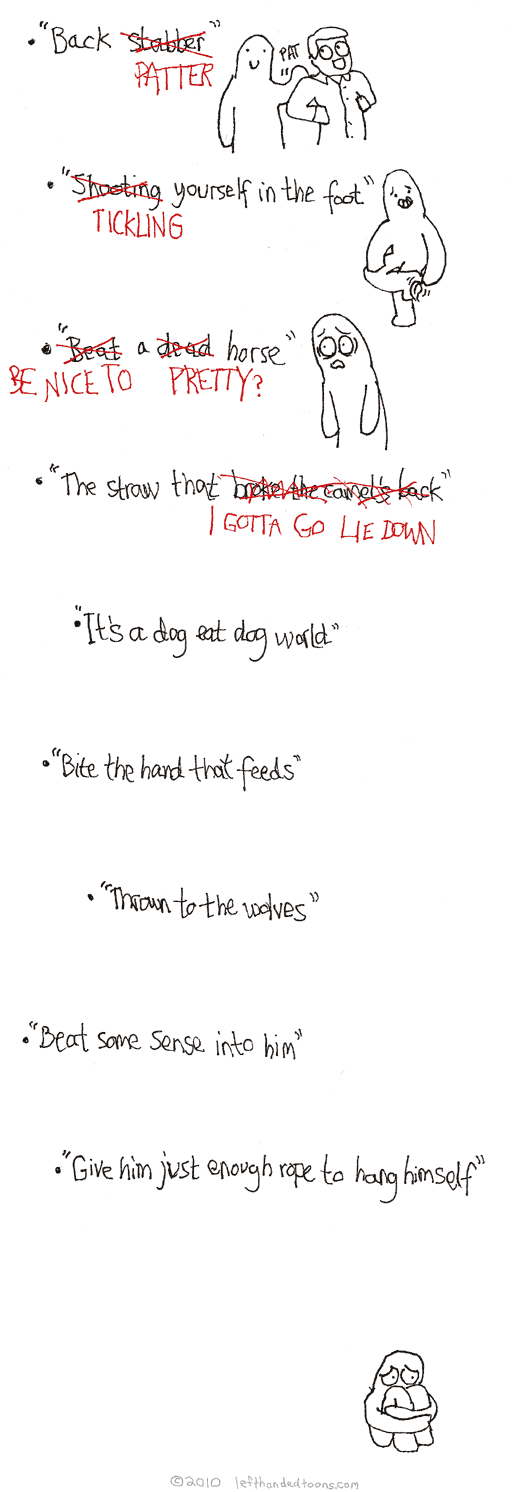 • "Back stabber"
PATTER
PAT
• "Shooting yourself in the foot"
TICKLING
• "Beat a dead horse"
BE NICE TO PRETTY?
• "The straw that broke the camel's back"
I GOTTA GO LIE DOWN
• "It's a dog eat dog world"
• "Bite the hand that feeds"
• "Thrown to the wolves"
• "Beat some sense into him"
• "Give him just enough rope to hang himself"
©2010 lefthandedtoons.com